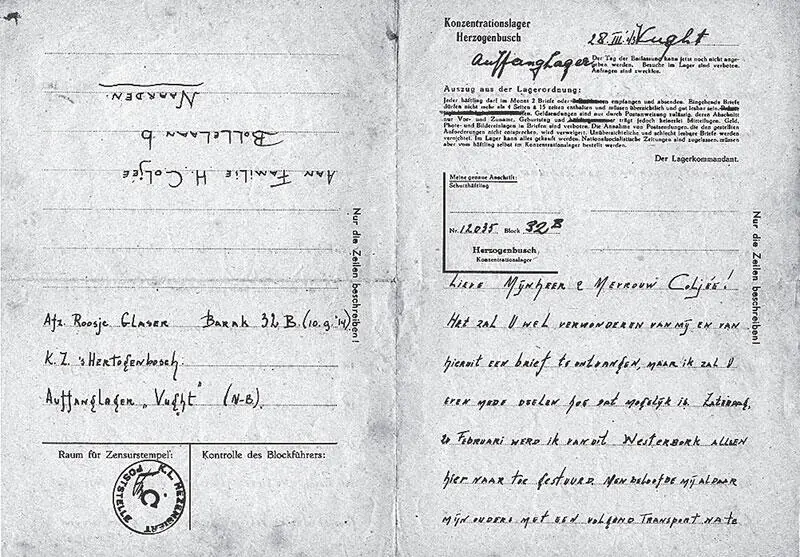 AAN FAMILIE H. COLJÉE
BOLLELAAN 6
NAARDEN.
Nur die Zeilen beschreiben!
Afz. ROOSJE GLASER BARAK 32 B. (10.9.'14)
K.Z. 'sHERTOGENBOSCH.
AUFFANGLAGER „VUGHT" (N-B).
Raum für Zensurstempel:
Kontrolle des Blockführers:
K.L. HERZOGENBUSCH
POSTSTELLE
C
Konzentrationslager
Herzogenbusch
28.III.43 Vught
Auffanglager
Der Tag der Entlassung kann jetzt noch nicht ange-
geben werden. Besuche im Lager sind verboten.
Anfragen sind zwecklos.
Auszug aus der Lagerordnung:
Jeder Häftling darf im Monat 2 Briefe oder empfangen und absenden. Eingehende Briefe
dürfen nicht mehr als 4 Seiten à 15 Zeilen enthalten und müssen übersichtlich und gut lesbar sein.
Geldsendungen sind nur durch Postanweisung zulässig, deren Abschnitt
nur Vor- und Zuname, Geburtstag und trägt jedoch keinerlei Mitteilungen. Geld,
Photo- und Bildereinlagen in Briefen sind verboten. Die Annahme von Postsendungen, die den gestellten
Anforderungen nicht entsprechen, wird verweigert. Unübersichtliche und schlecht lesbare Briefe werden
vernichtet. Im Lager kann alles gekauft werden. Nationalsozialistische Zeitungen sind zugelassen, müssen
aber vom Häftling selbst im Konzentrationslager bestellt werden.
Der Lagerkommandant.
Meine genaue Anschrift:
Schutzhäftling
Nr. 12035 Block 32 B
Herzogenbusch
Konzentrationslager
Nur die Zeilen beschreiben!
LIEVE MIJNHEER & MEVROUW COLJÉE!
HET ZAL U WEL VERWONDEREN VAN MIJ EN VAN
HIERUIT EEN BRIEF TE ONTVANGEN, MAAR IK ZAL U
EVEN MEDE DEELEN HOE DAT MOGELIJK IS. ZATERDAG,
20 FEBRUARI WERD IK VANUIT WESTERBORK ALLEEN
HIER NAAR TOE GESTUURD. MEN BELOOFDE MIJ ALDAAR
MIJN OUDERS MET EEN VOLGEND TRANSPORT NA TE